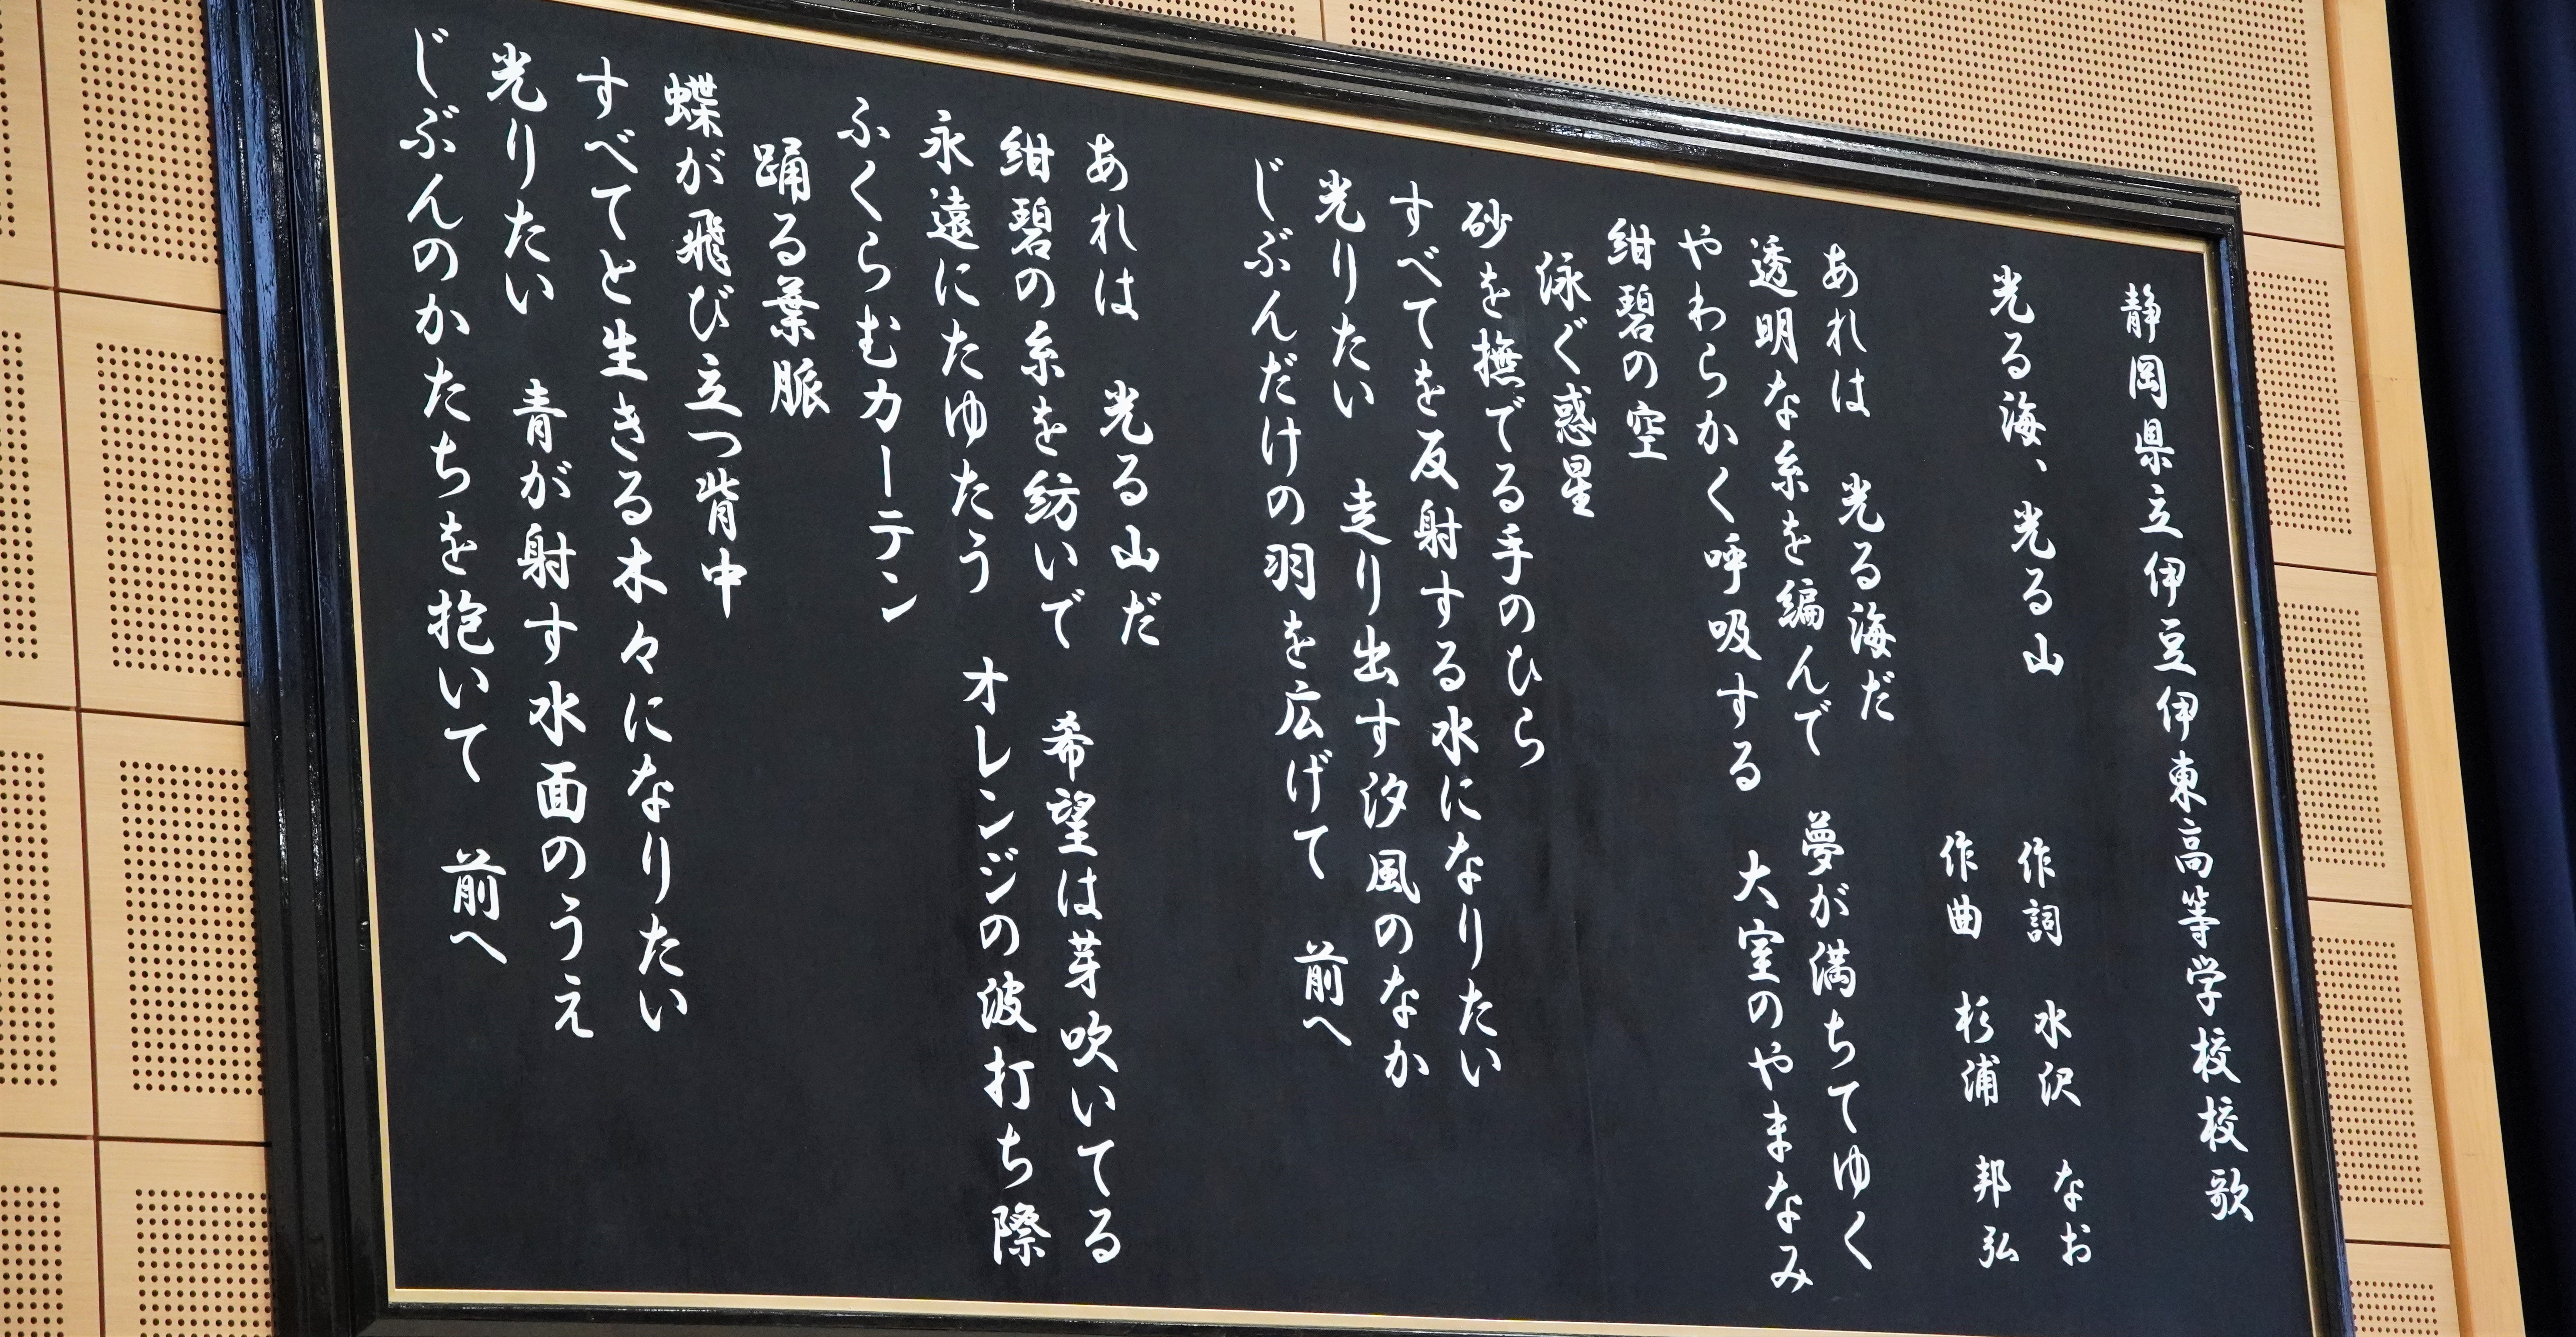 静岡県立伊豆伊東高等学校校歌
光る海、光る山
作詞　水沢　なお
作曲　杉浦　邦弘
あれは　光る海だ
透明な糸を編んで　夢が満ちてゆく
やわらかく呼吸する　大室のやまなみ
紺碧の空
泳ぐ惑星
砂を撫でる手のひら
すべてを反射する水になりたい
光りたい　走り出す汐風のなか
じぶんだけの羽を広げて　前へ
あれは　光る山だ
紺碧の糸を紡いで　希望は芽吹いてる
永遠にたゆたう　オレンジの波打ち際
ふくらむカーテン
踊る葉脈
蝶が飛び立つ背中
すべてと生きる木々になりたい
光りたい　青が射す水面のうえ
じぶんのかたちを抱いて　前へ